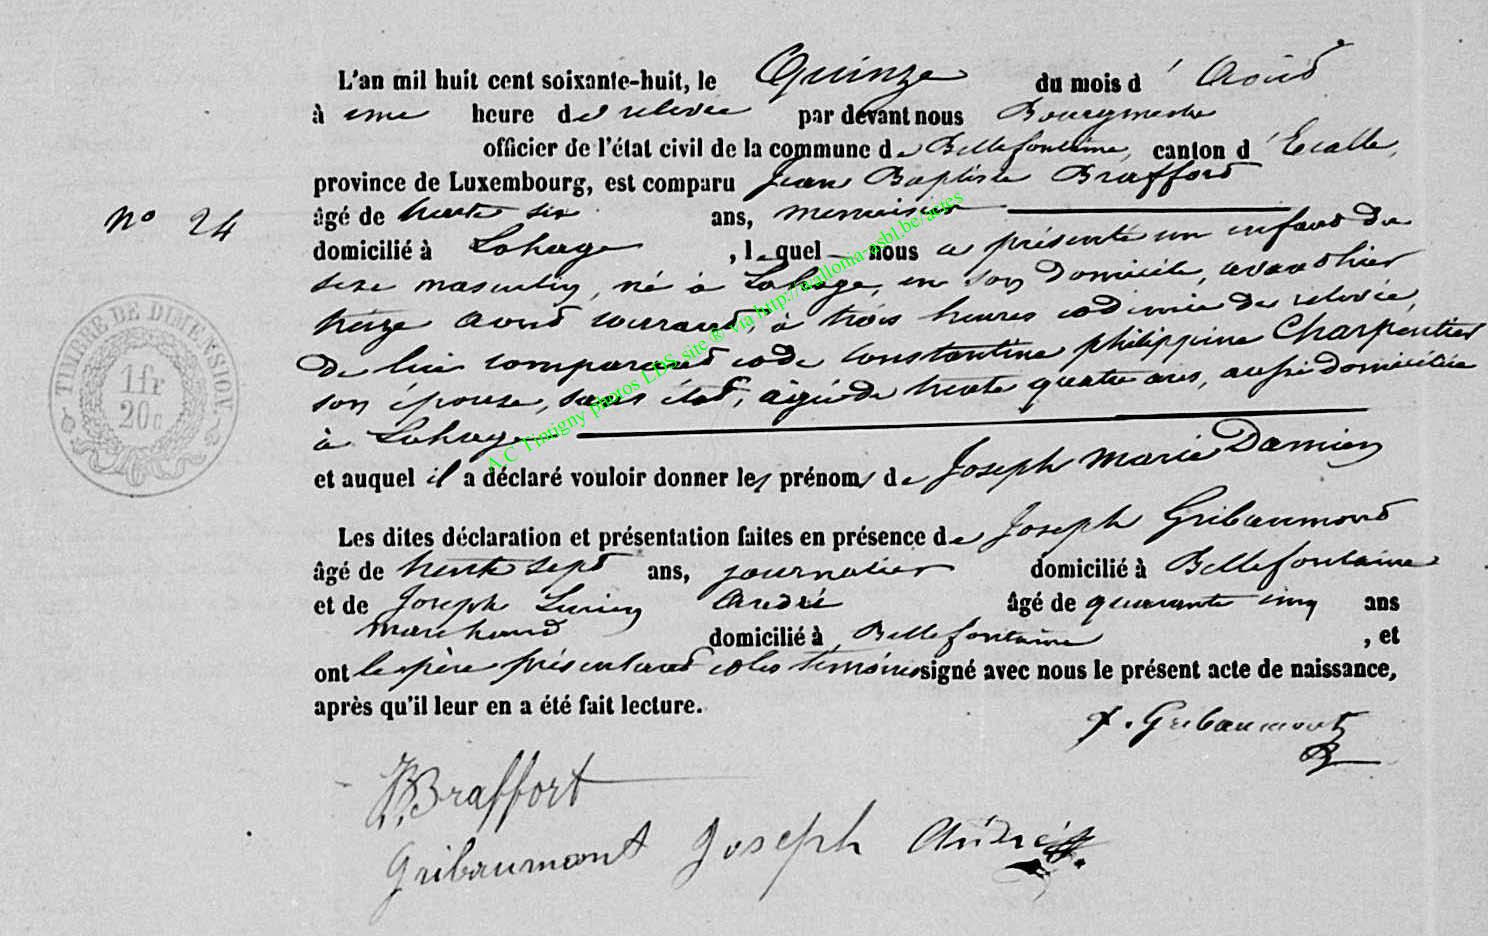 L'an mil huit cent soixante-huit, le Quinze du mois d'Août
à une heure de relevée par devant nous Bourgmestre
officier de l'état civil de la commune de Bellefontaine, canton d'Etalle,
province de Luxembourg, est comparu Jean Baptiste Braffort
N° 24
âgé de trente six ans, menuisier
domicilié à Lahage, lequel nous a présenté un enfant du
sexe masculin, né à Lahage, en son domicile, avant hier
treize Août courant, à trois heures et demie de relevée,
de lui comparant et de Constantine philippine Charpentier
son épouse, sans état, agée de trente quatre ans, aussi domiciliée
à Lahage
et auquel il a déclaré vouloir donner les prénoms de Joseph Marie Damien
Les dites déclaration et présentation faites en présence de Joseph Gribaumont
âgé de trente sept ans, journalier domicilié à Bellefontaine
et de Joseph Lucien André âgé de quarante cinq ans
marchand domicilié à Bellefontaine, et
ont le père présentant et les témoins signé avec nous le présent acte de naissance,
après qu'il leur en a été fait lecture.
Gribaumont
Braffort
Gribaumont Joseph André
TIMBRE DE DIMENSION.
1 fr
20 c
A.C Tintigny photos LDS, site ® via http://wallonia-asbl.be/actes